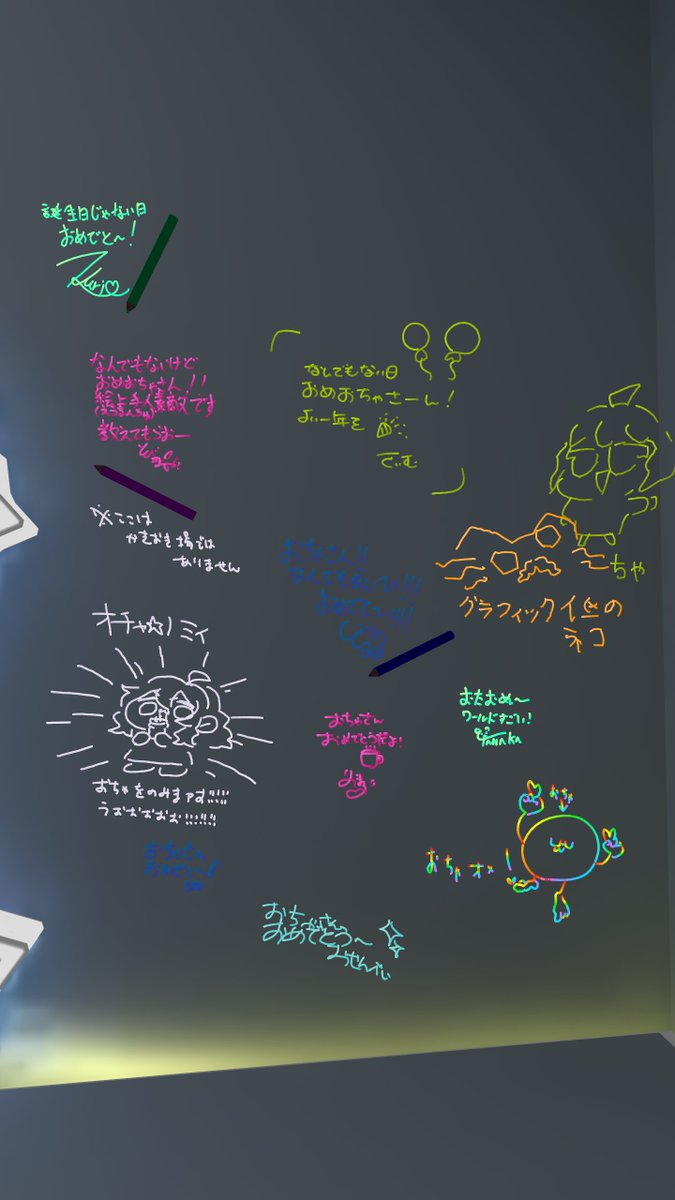 誕生日じゃない日
おめでと〜!
なんでもないけど
おめおちゃさん!!
絵上手人素敵です
教えてもらおー
なんでもない日
おめおちゃさーん!
よい一年を
でいむ
※ここは
かきおき場では
ありません
おちゃさん!!
なんでもない日!!!
おめでと〜!!!!
ちゃ
グラフィック位置の
ネコ
オチャ☆ノミィ
おちゃをのみまァす!!!!!
うおおおおお!!!!!!
おちゃさん
おめでとうだよ!
おたおめ〜
ワールドすごい!
TANAKA
おちゃ
おちゃオォ!
おちゃさん
おめでとう〜
おちゃさん
おめでとう〜
みせんべい